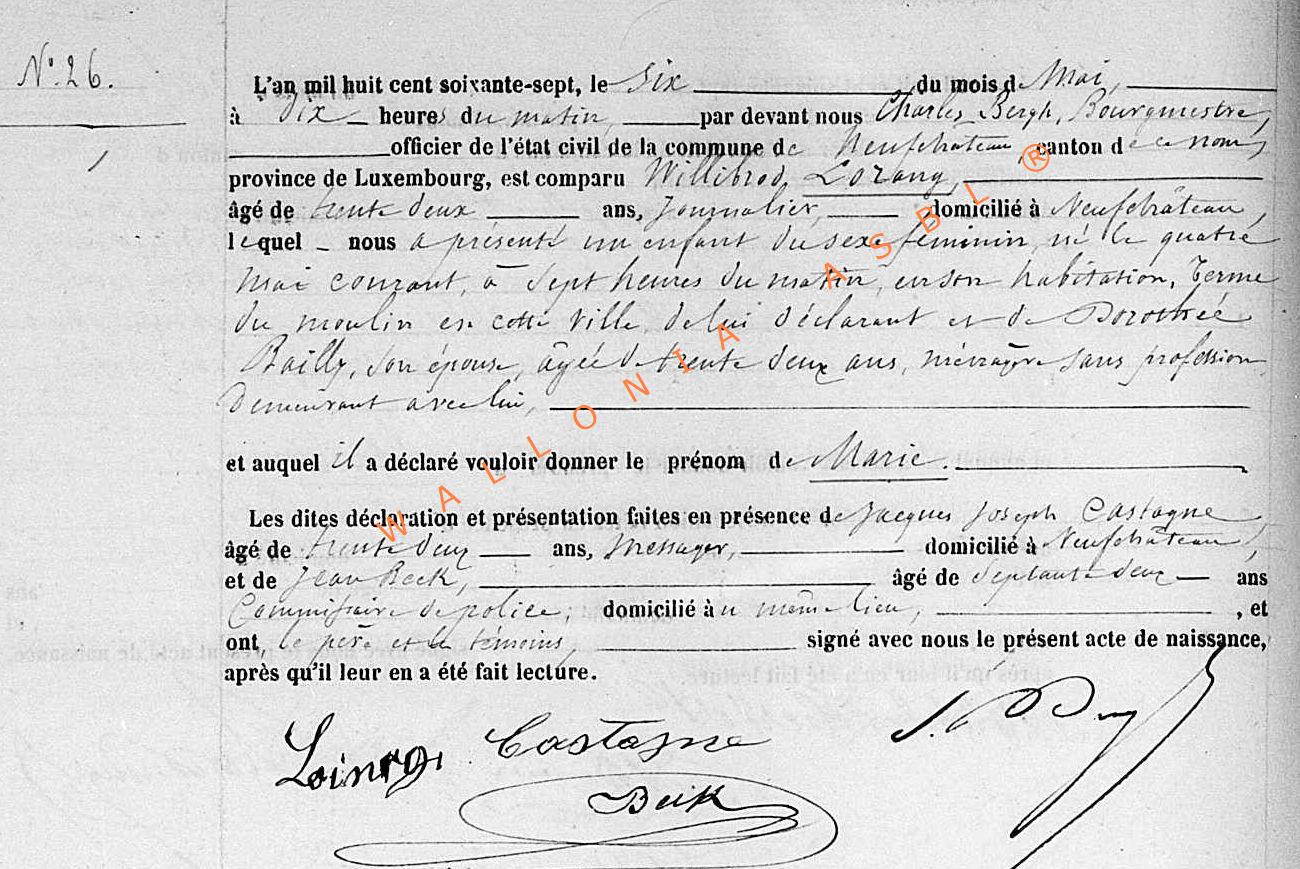 N° 26.
L'an mil huit cent soixante-sept, le six du mois de Mai,
à dix heures du matin, par devant nous Charles Bergh, Bourgmestre,
officier de l'état civil de la commune de Neufchâteau, canton de ce nom,
province de Luxembourg, est comparu Willibrod Lorang,
âgé de trente deux ans, journalier, domicilié à Neufchâteau,
lequel nous a présenté un enfant du sexe féminin, né le quatre
mai courant, à sept heures du matin, en son habitation,
du moulin en cette ville, de lui déclarant et de Dorothée
Bailly, son épouse, âgée de trente deux ans, ménagère sans profession
demeurant avec lui,
et auquel il a déclaré vouloir donner le prénom de Marie.
Les dites déclaration et présentation faites en présence de Jacques Joseph Castagne
âgé de trente deux ans, Messager, domicilié à Neufchâteau,
et de Jean Beck, âgé de septante deux ans
Commissaire de police, domicilié au même lieu, , et
ont, le père et les témoins, signé avec nous le présent acte de naissance,
après qu'il leur en a été fait lecture.
Castagne
Beik
WALLONIA ASBL ®